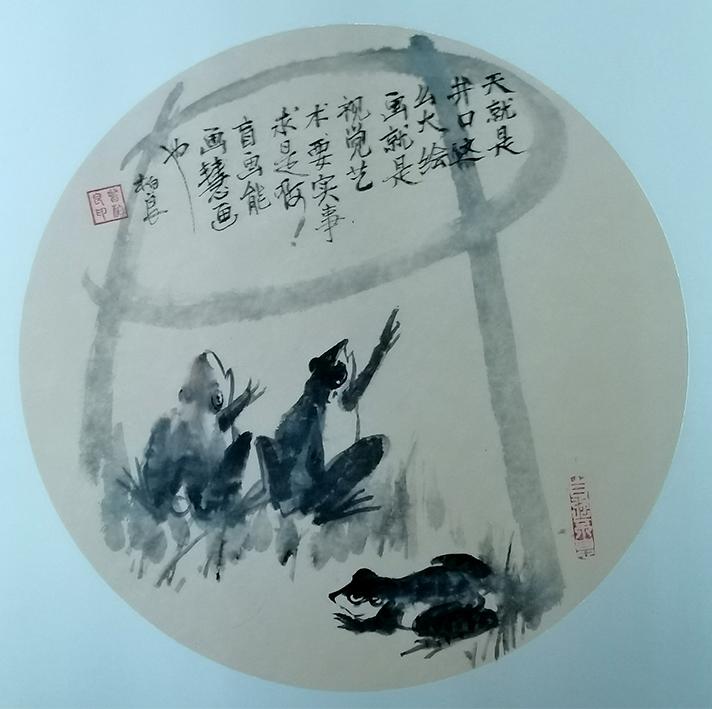 天就是
井口这
么大绘
画就是
视觉艺
术要实事
求是啊！
盲画能
画慧画
也
柏良
曾柏
良印